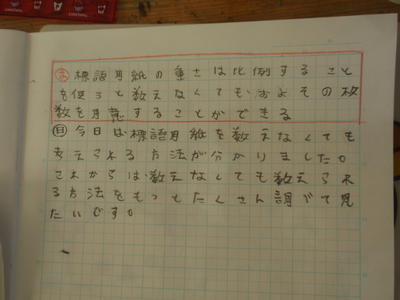 ま 標語用紙の重さは比例すること
を使うと数えなくてもおよその枚
数を用意することができる
自 今日は、標語用紙を数えなくても
考えられる方法が分かりました。
これからは、数えなくても数えられ
る方法をもっとたくさん調べて見
たいです。